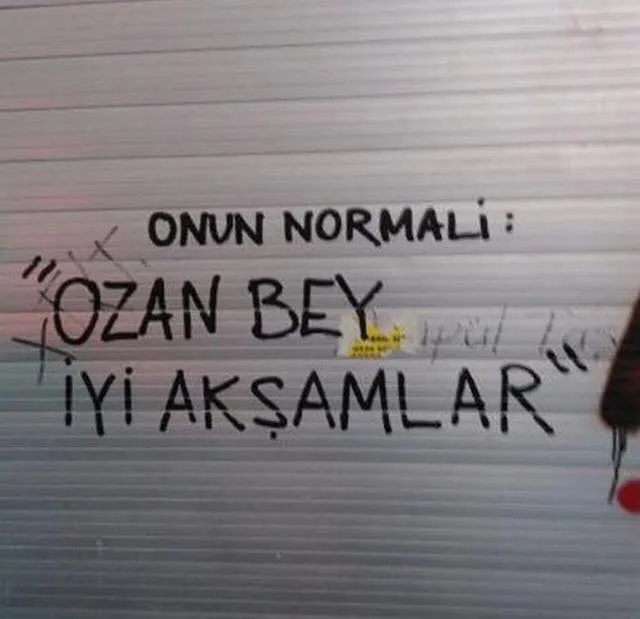 ONUN NORMALİ:
"OZAN BEY
İYİ AKŞAMLAR"